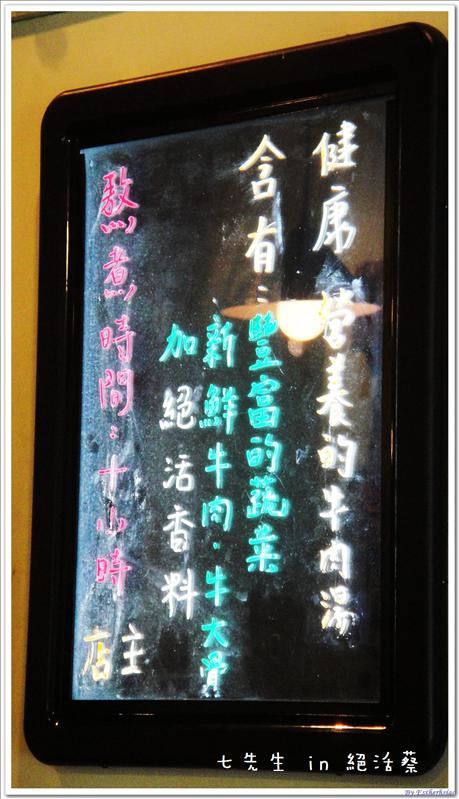 健康 營養的牛肉湯
含有:豐富的蔬菜
、新鮮牛肉.牛大骨
加絕活香料
熬煮時間:十小時
店主
七先生 in 絕活蔡
By Estherhsiao